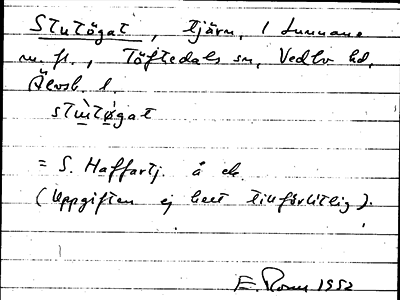 Stutögat, tjärn, i Lunnane
m. fl., Töftedals sn, Vedbo hd,
Älvsb. l.
stùtǿgat
= S. Haffartj. å ek.
(Uppgiften ej helt tillförlitlig).
E. 1952